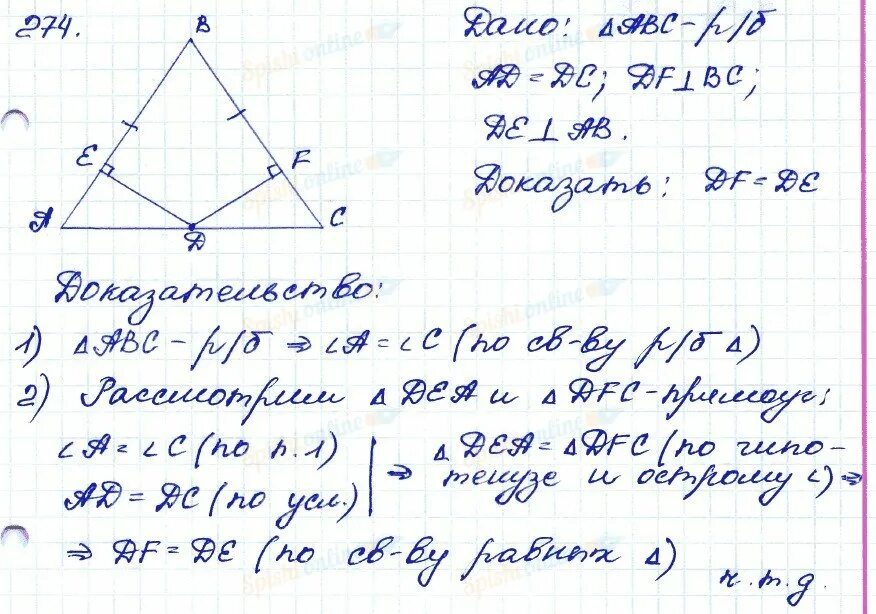 274.
B
E
F
A
D
C
Дано: △ABC - р/б
AD = DC; DF⊥BC;
DE⊥AB.
Доказать: DF = DE
Доказательство:
1) △ABC - р/б ⇒ ∠A = ∠C (по св-ву р/б △)
2) Рассмотрим △DEA и △DFC - прямоуг;
∠A = ∠C (по п.1)
AD = DC (по усл.)
⇒ △DEA = △DFC (по гипо-
тенузе и острому ∠) ⇒
⇒ DF = DE (по св-ву равных △)
ч.т.д.
Spishi online